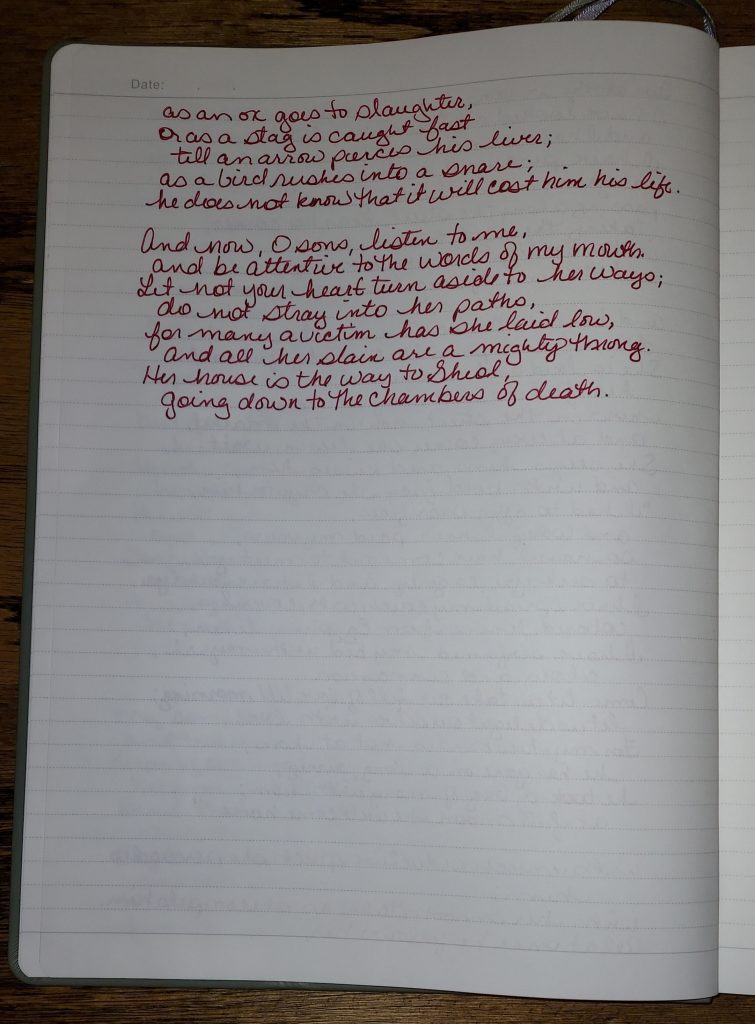 Date:
as an ox goes to slaughter,
or as a stag is caught fast
till an arrow pierces his liver;
as a bird rushes into a snare;
he does not know that it will cost him his life.
And now, O sons, listen to me,
and be attentive to the words of my mouth.
Let not your heart turn aside to her ways;
do not stray into her paths,
for many a victim has she laid low,
and all her slain are a mighty throng.
Her house is the way to Sheol,
going down to the chambers of death.